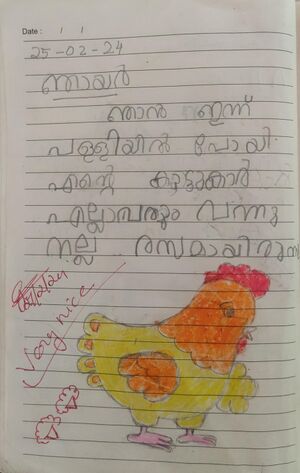 Date : / /
25-02-24
ഞായർ
ഞാൻ ഇന്ന്
പള്ളിയിൽ പോയി.
എന്റെ കൂട്ടുകാർ
എല്ലാവരും വന്നു
നല്ല രസമായിരുന്നു
Very nice